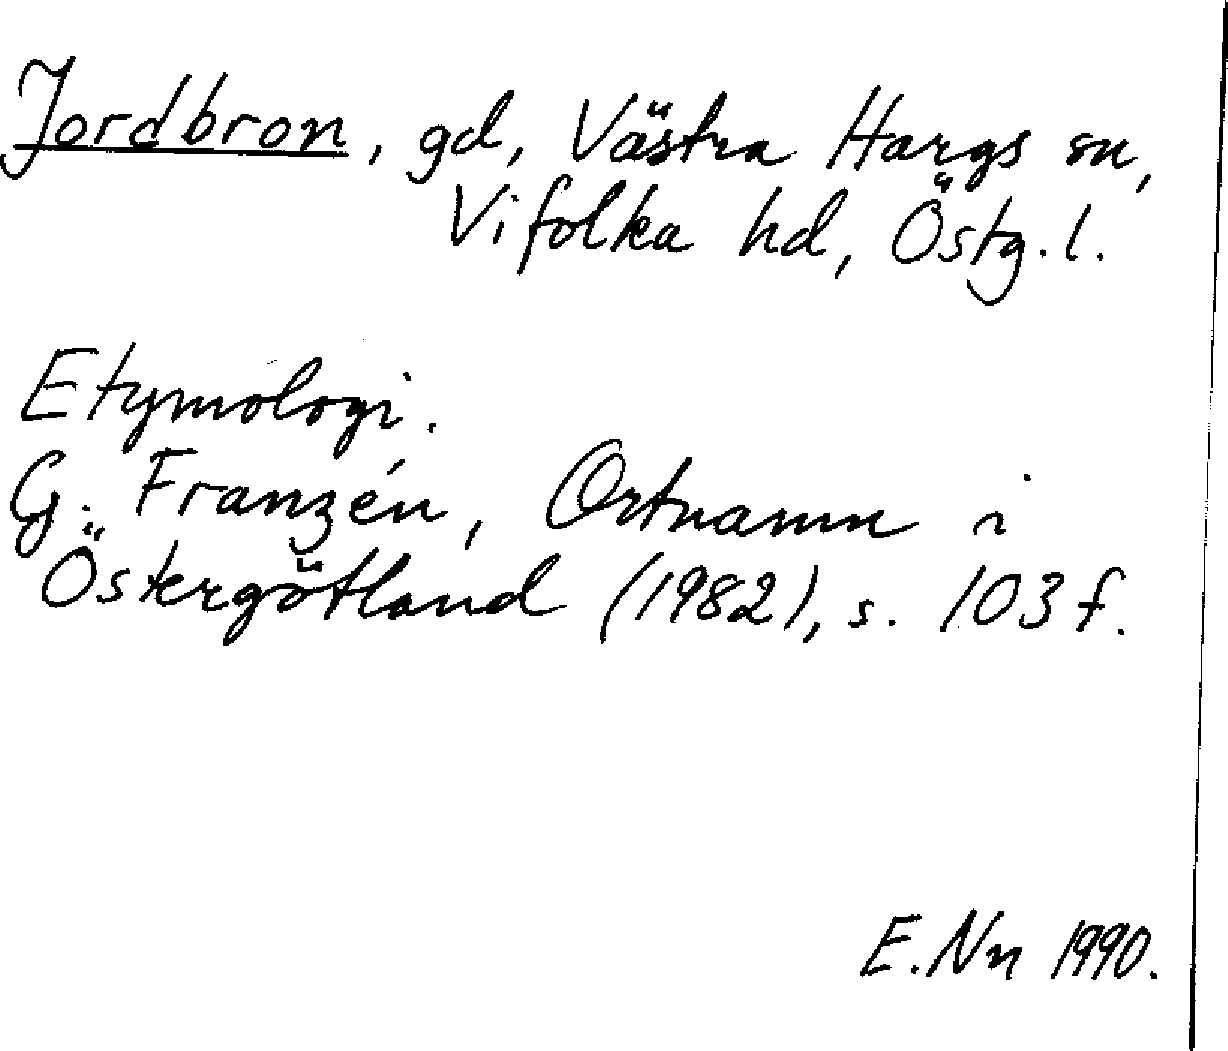 Jordbron, gd, Västra Hargs sn,
Vifolka hd, Östg. l.
Etymologi.
G. Franzén, Ortnamn i
Östergötland (1982), s. 103 f.
E. Nn 1990.